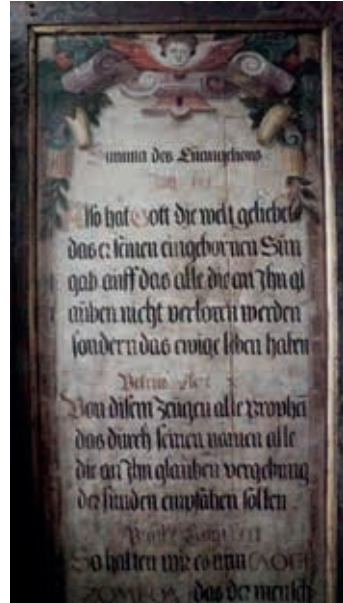 Summa des Euangelions
Also hat Gott die welt geliebet
das er seinen eingebornen Sun
gab auff das alle die an Ihn gl
auben nicht verloren werden
sondern das ewige leben haben
Petrus Act
Von disem zeugen alle prophe
das durch seinen namen alle
die an Ihn glauben vergebung
der sünden empfahen sollen
So halten wir es nun ΛΟΓΙ
ΖΟΜΕΘΑ das der mensch